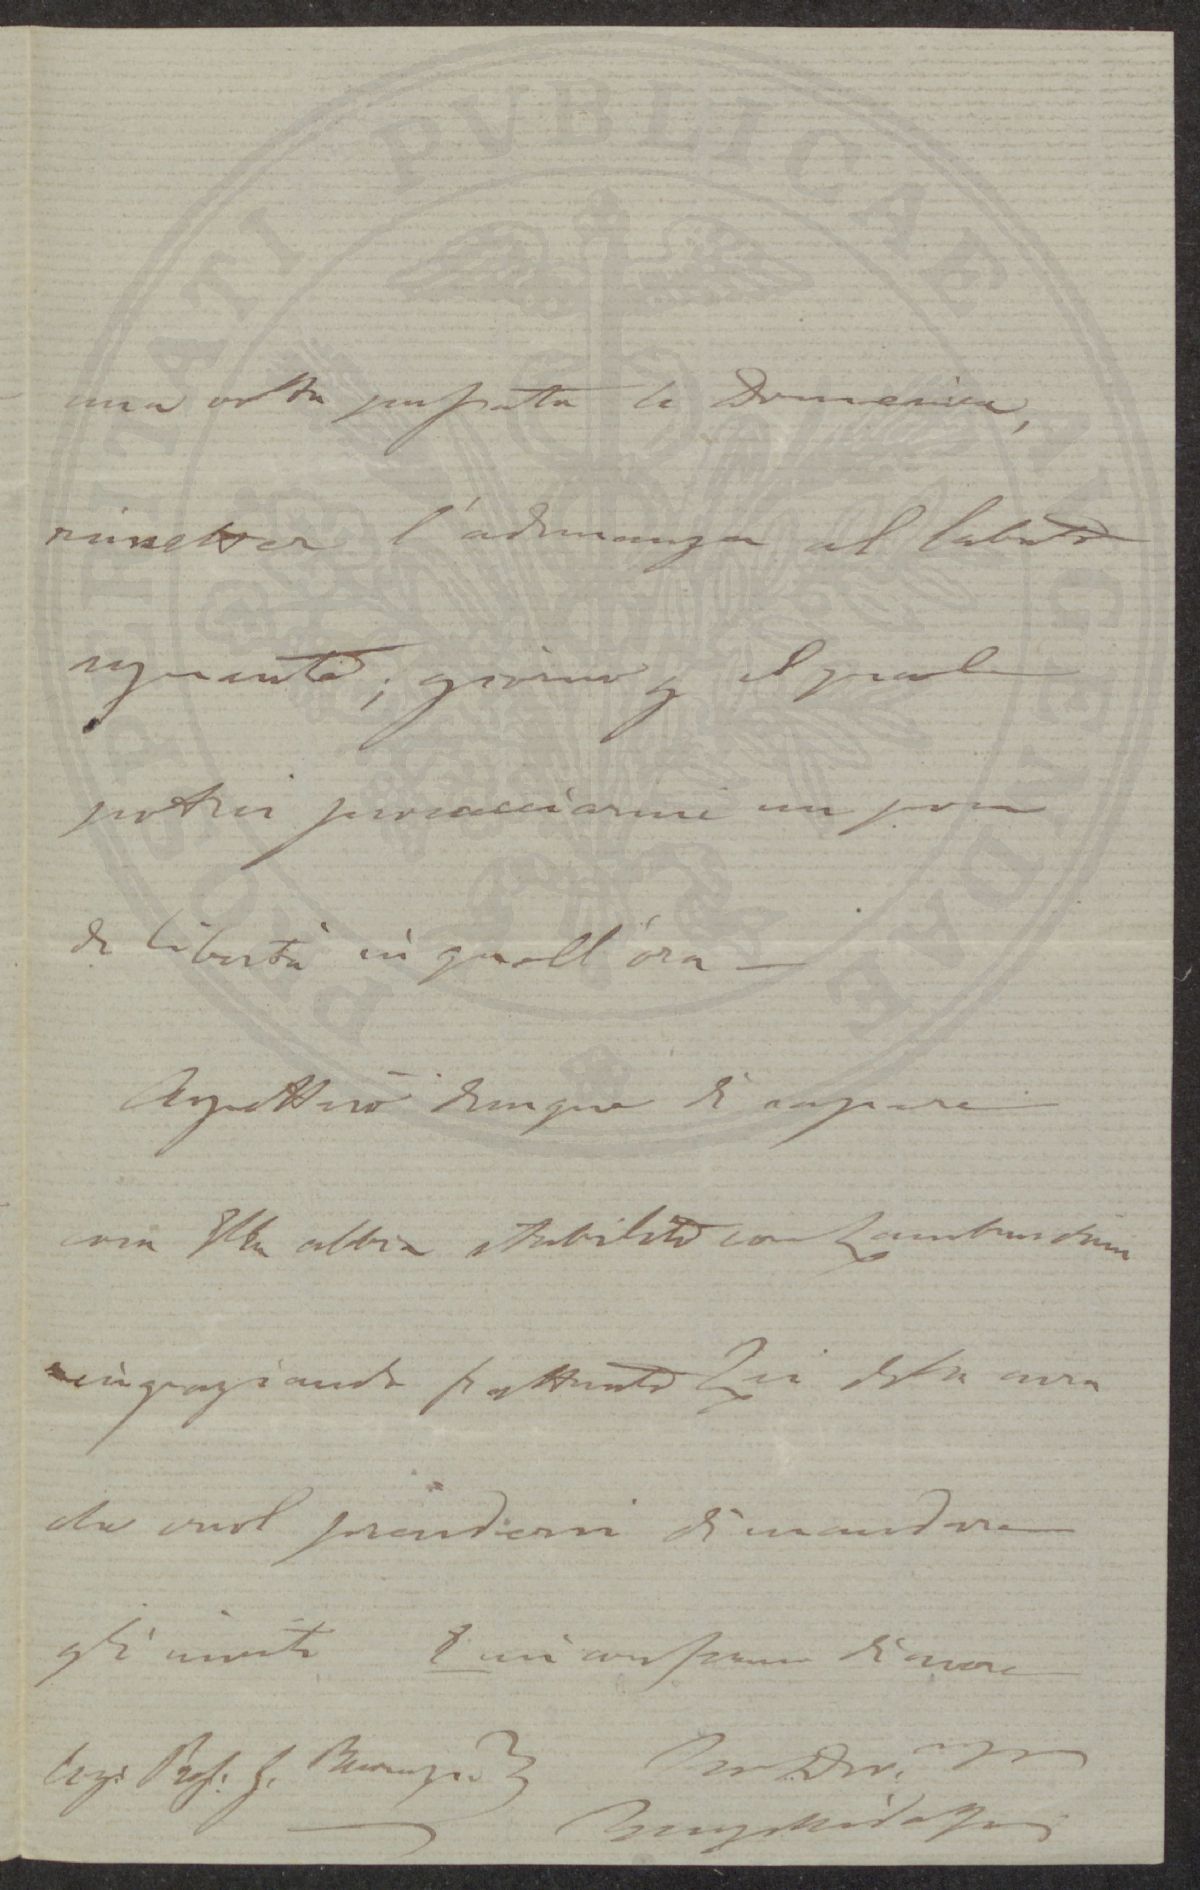 PROSPERITATI PVBLICAE AVGENDAE
una volta passata la Domenica,
rimetter l'adunanza al Sabato
seguente, giorno il quale
potrei procacciarmi un poco
di libertà in quell'ora —
Aspetterò dunque di sapere
cosa Ella abbia stabilito con Lambruschini
ringraziando frattanto Lei della cura
che vuol prendersi di mandare
gli inviti E mi confermo di cuore
Prof: